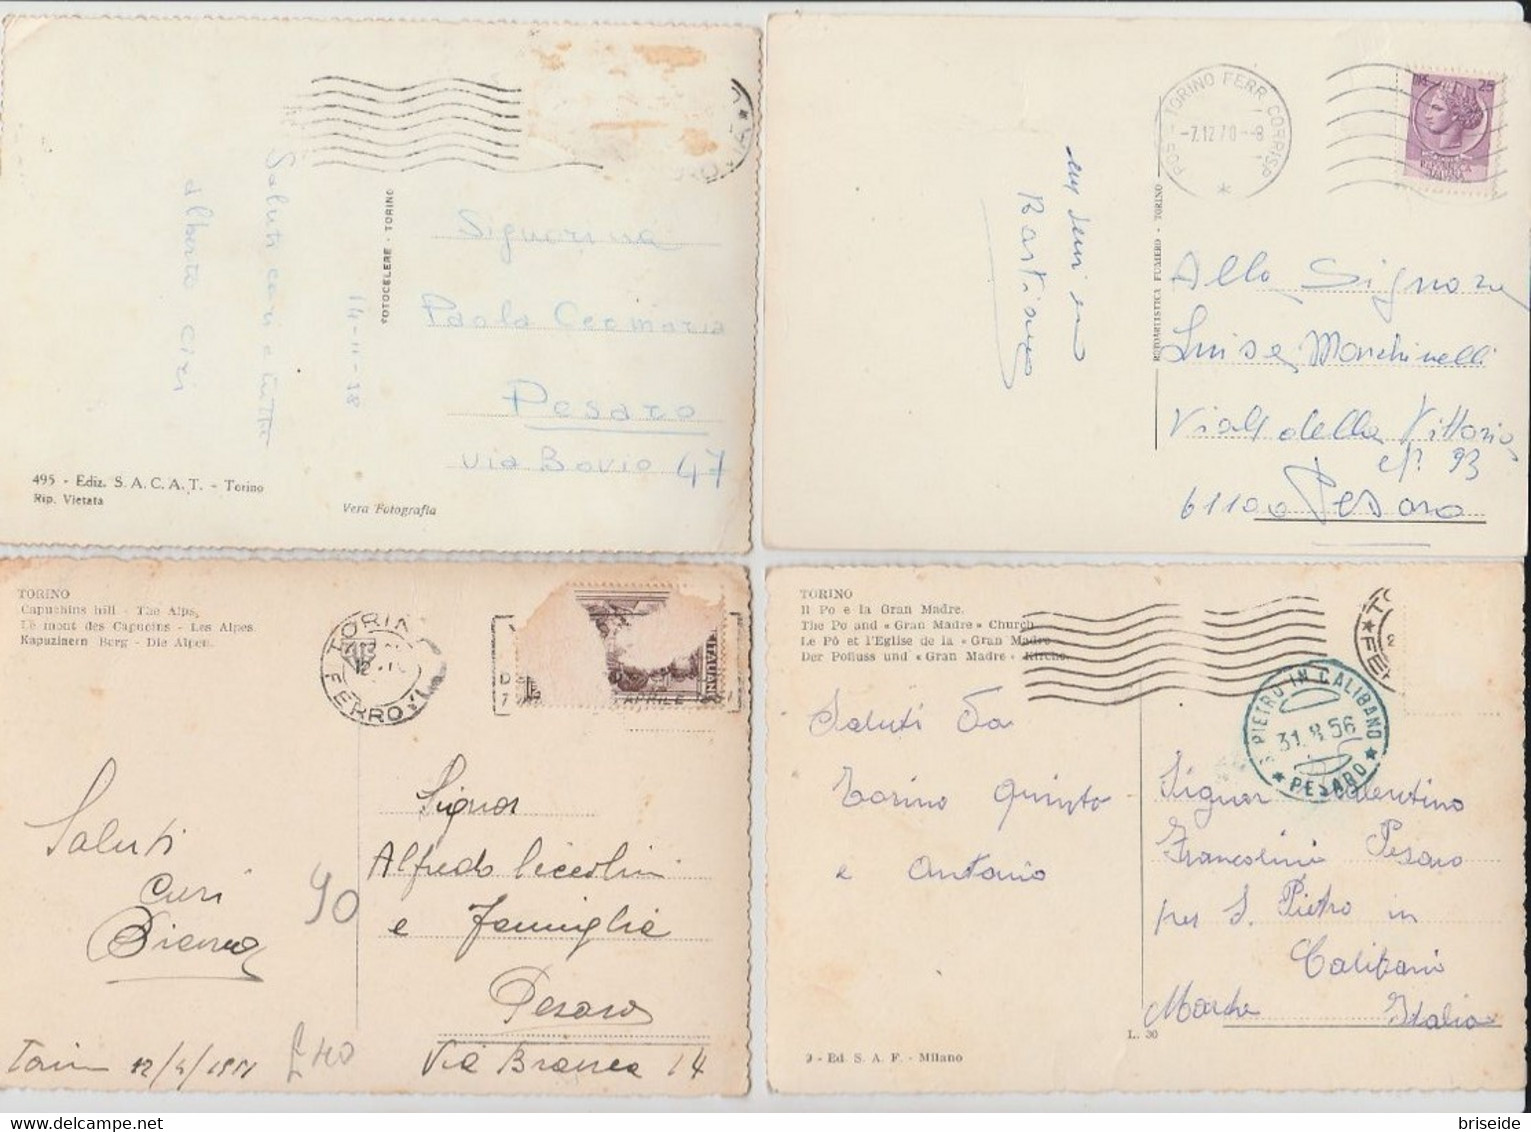 Saluti cari e tutte
Alberto Cizi
14-11-58
FOTOCELERE - TORINO
Signorina
Paola Ceomaria
Pesaro
via Bovio 47
495 - Ediz. S. A. C. A. T. - Torino
Rip. Vietata
Vera Fotografia
POS - TORINO FERR. CORRISP.
-7.12.70--8
25
ROTOARTISTICA FUMERO - TORINO
Alla Signora
Luisa Marchinelli
Viale della Vittoria
n° 93
61100 Pesaro
TORINO
Capuchins hill - The Alps.
Le mont des Capucins - Les Alpes.
Kapuzinern Berg - Die Alpen.
TORINO
FERROVIA
ITALIANE
APRILE
Saluti
cari
90
Signor
Alfredo Ciccolini
e Famiglia
Pesaro
Via Branca 14
12/4/1951
£40
TORINO
Il Po e la Gran Madre.
The Po and «Gran Madre» Church.
Le Pô et l'Eglise de la «Gran Madre»
Der Pofluss und «Gran Madre» Kirche.
S. PIETRO IN CALIBANO
31.8.56
PESARO
Saluti Da
Torino Quinto
e Antonio
Signor Valentino
Francolini Pesaro
per S. Pietro in
Calibano
Marche Italia
L. 30
9 - Ed. S. A. F. - Milano
briseide